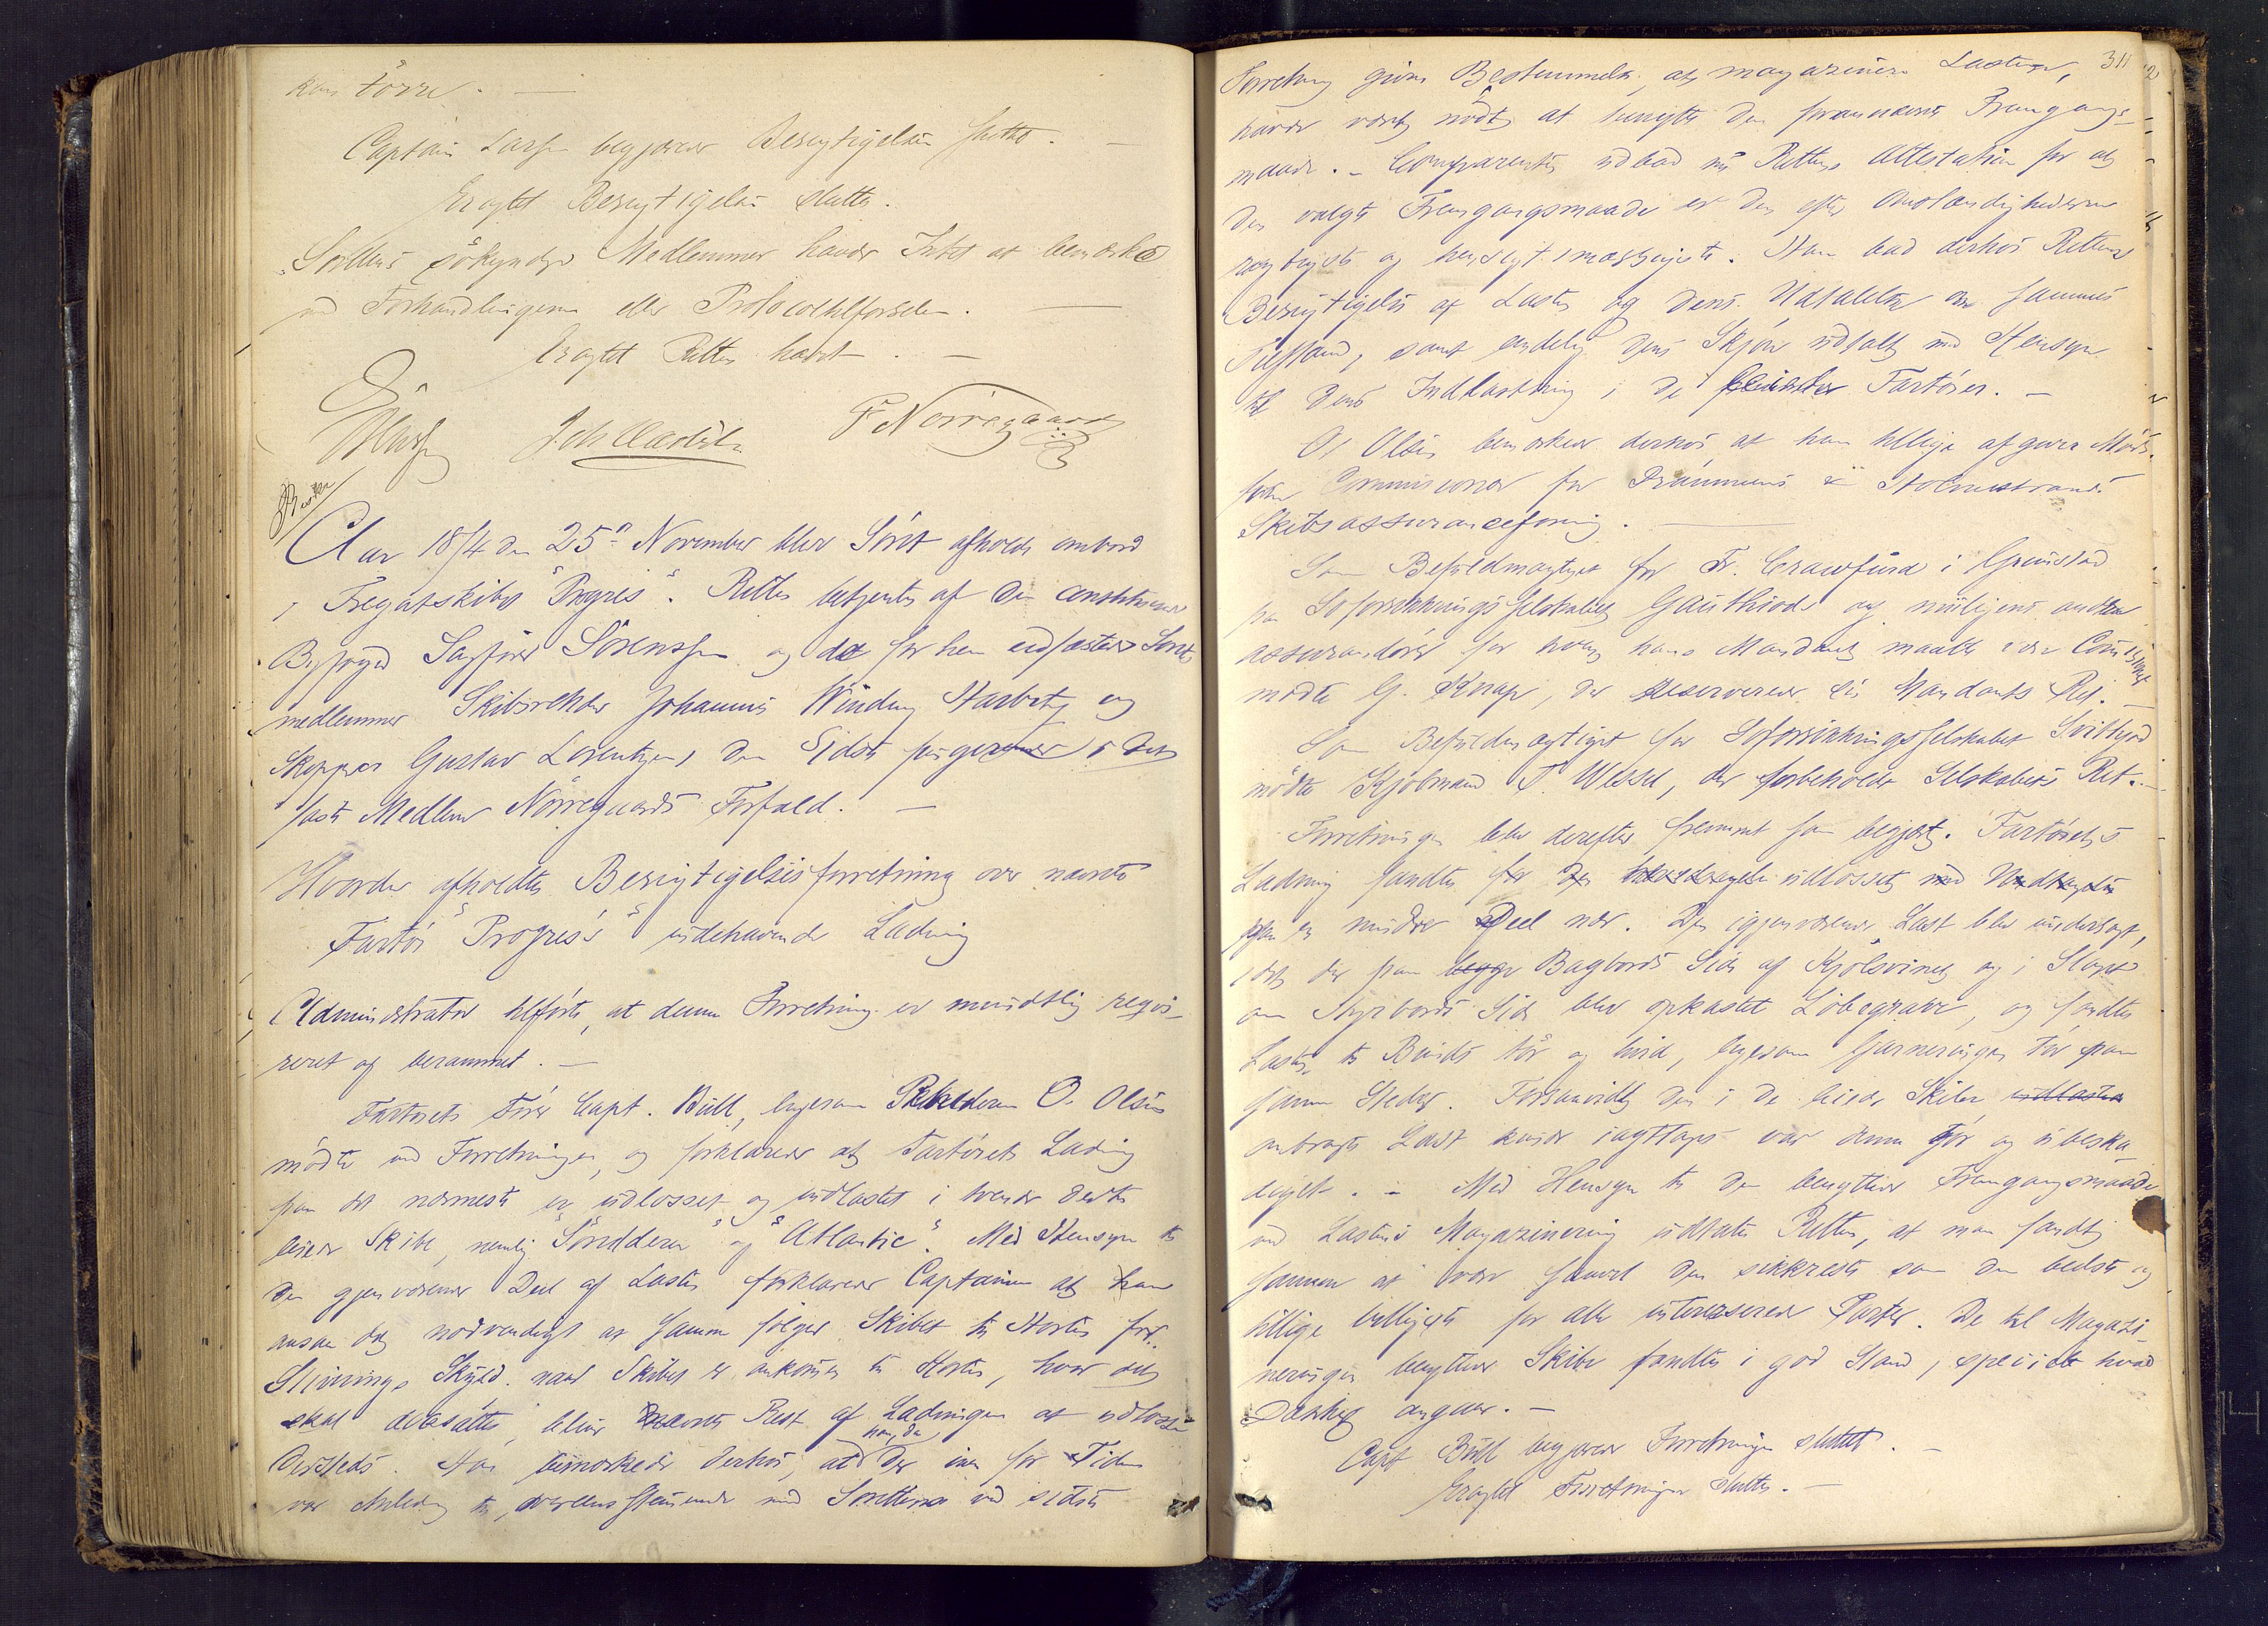 kun tørre. —
Captain Larsen begjærede Besigtigelsen sluttet. —
Eragtet Besigtigelsen sluttes.
Søllens søkyndige Medlemmer havde Intet at bemærke
ved Forhandlingerne eller Protocolltilførselen. —
Eragtet Retten hævet. —
F. Nørregaard
Aar 1874 den 25de November blev Søret afholdt ombord
i Fregatskibet "Progres". Retten betjentes af den constituerede
Byfoged Sagfører Sørenssen og de for ham edfæstede Sørets
medlemmer Skibsreder Johannes Winding Harbitz og
Skipper Gustav Lorentzen, den Sidste fungerende i det
faste Medlem Nørregaards Forfald. —
Hvorda afholdtes Besigtigelsesforretning over nævnte
Fartøi "Progres's" indehavende Ladning
Administrator tilførte, at denne Forretning er mundtlig reqvi-
reret og berammet. —
Fartøiets Fører Capt. Bull, ligesom Rhederen O. Olsen
mødte ved Forretningen, og forklarede at Fartøiets Ladning
paa det nærmeste er udlosset og indlastet i tvende dertil
leiede Skibe, nemlig "Sønderen" og "Atlantic". Med Hensyn til
den gjenværende Deel af Lasten forklarede Captainen at han
ansaa det nødvendigt at samme følger Skibet til Horten for
Stivnings Skyld. naar Skibet er ankommet til Horten, hvor det
skal doksættes, bliver nævnte Rest af Ladningen at udlosse
dersteds. Han bemærkede derhos, at han, da der ei for Tiden
var Anledning til, overensstemmende med Sørettens ved sidste
311
Forretning givne Bestemmelse, at magazinere Lasten,
havde været nødt at benytte den forannævnte Fremgangs-
maade. — Comparenten udbad sig Rettens Attestation for at
den valgte Fremgangsmaade er den efter Omstændighederne
rigtigste og hensigtsmæssigste. Han bad derhos Rettens
Besigtigelse af Lasten og dens Udtalelse om sammes
Tilstand, samt endelig dens Skjøn udtalt med Hensyn
til dens Indlastning i de leiede Fartøier. —
O. Olsen bemærkede derhos at han tillige afgiver Møde
som Commissionær for Drammens & Holmestrands
Skibsassuranceforening. —
Som Befuldmægtiget for Fr. Crawfurd i Grimstad
for Søforsikkringsselskabet Gauthiod og muligens andre
assurandører for hvem hans Mandant maatte være Commissionær
mødte G. Knap, der reserverede sin Mandants Ret. —
Som Befuldmægtiget for Søforsikkringsselskabet Svithjod
mødte Kjøbmand T. Wessel, der forbeholdt Selskabets Ret. —
Forretningen blev derefter fremmet som begjært. Fartøiets
Ladning fandtes for den udlosset med Undtagelse
paa en mindre Deel nær. Den igjenværende Last blev undersøgt,
idet der paa begge Bagbords Side af Kjølsvinet og i Slaget
om Styrbords Side blev opkastet Løbegrave, og fandtes
Lasten til Bunds tør og hvid, ligesom Garneringen tør paa
samme Steder. Forsaavidt den i de leiede Skibe indlastede
ombragte Last kunde iagttages var denne tør og ubeska-
diget. — Med Hensyn til den benyttede Fremgangsmaade
ved Lastens Magazinering udtalte Retten, at man fandt
samme at være saavel den sikkreste som den bedste og
tillige billigste for alle interesserede Parter. De til Magazi-
neringen benyttede Skibe fandtes i god Stand, specielt hvad
Dækket angaar. —
Capt Bull begjærede Forretningen sluttet. —
Eragtet Forretningen sluttes. —